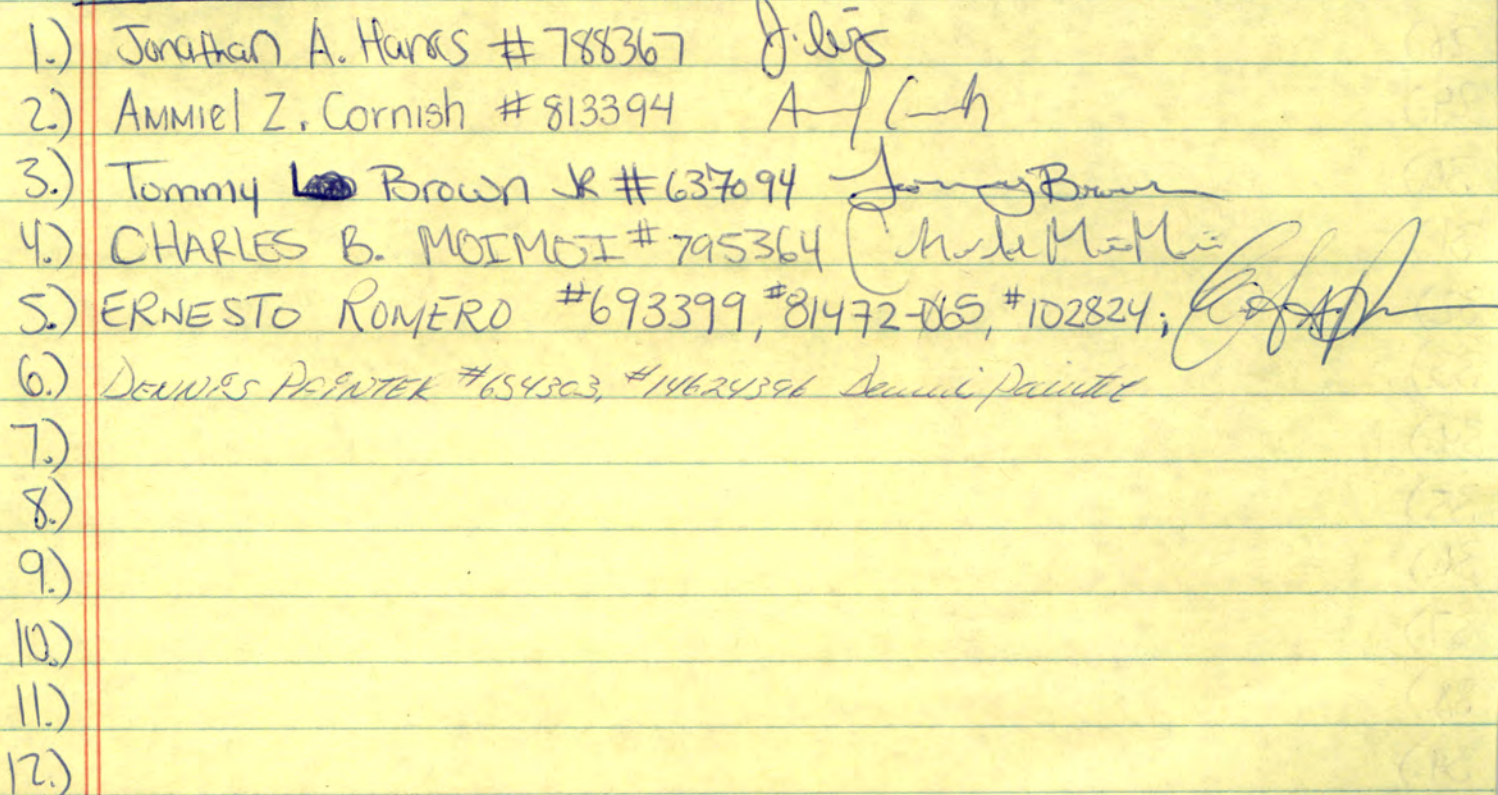 1.) Jonathan A. Harris # 788367
2.) AMMiel Z. Cornish # 813394
3.) Tommy Brown JR # 637094 Tommy Brown
4.) CHARLES B. MOIMOI # 795364
5.) ERNESTO ROMERO #693399, #81472-065, #102824;
6.) DENNIS PAINTER #654303, #14624396 Dennis Painter
7.)
8.)
9.)
10.)
11.)
12.)